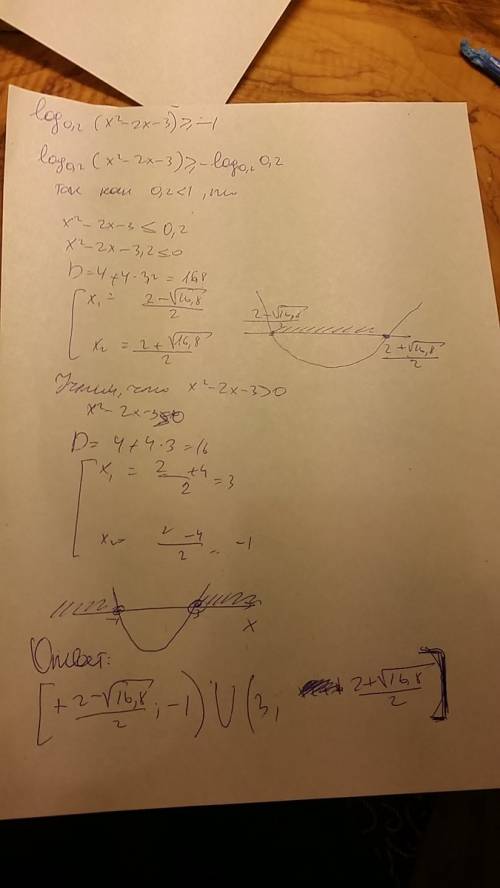 log₀,₂ (x²-2x-3) ≥ -1
log₀,₂ (x²-2x-3) ≥ -log₀,₂ 0,2
так как 0,2<1, то
x²-2x-3 ≤ 0,2
x²-2x-3,2 ≤ 0
D=4+4·3,2 = 16,8
x₁ = (2-√16,8)/2
x₂ = (2+√16,8)/2
(2-√16,8)/2
(2+√16,8)/2
Учтем, что x²-2x-3>0
x²-2x-3=0
D= 4+4·3=16
x₁ = (2+4)/2 = 3
x₂= (2-4)/2 = -1
-1 3
x
Ответ:
[+(2-√16,8)/2; -1) ∪ (3, (2+√16,8)/2]